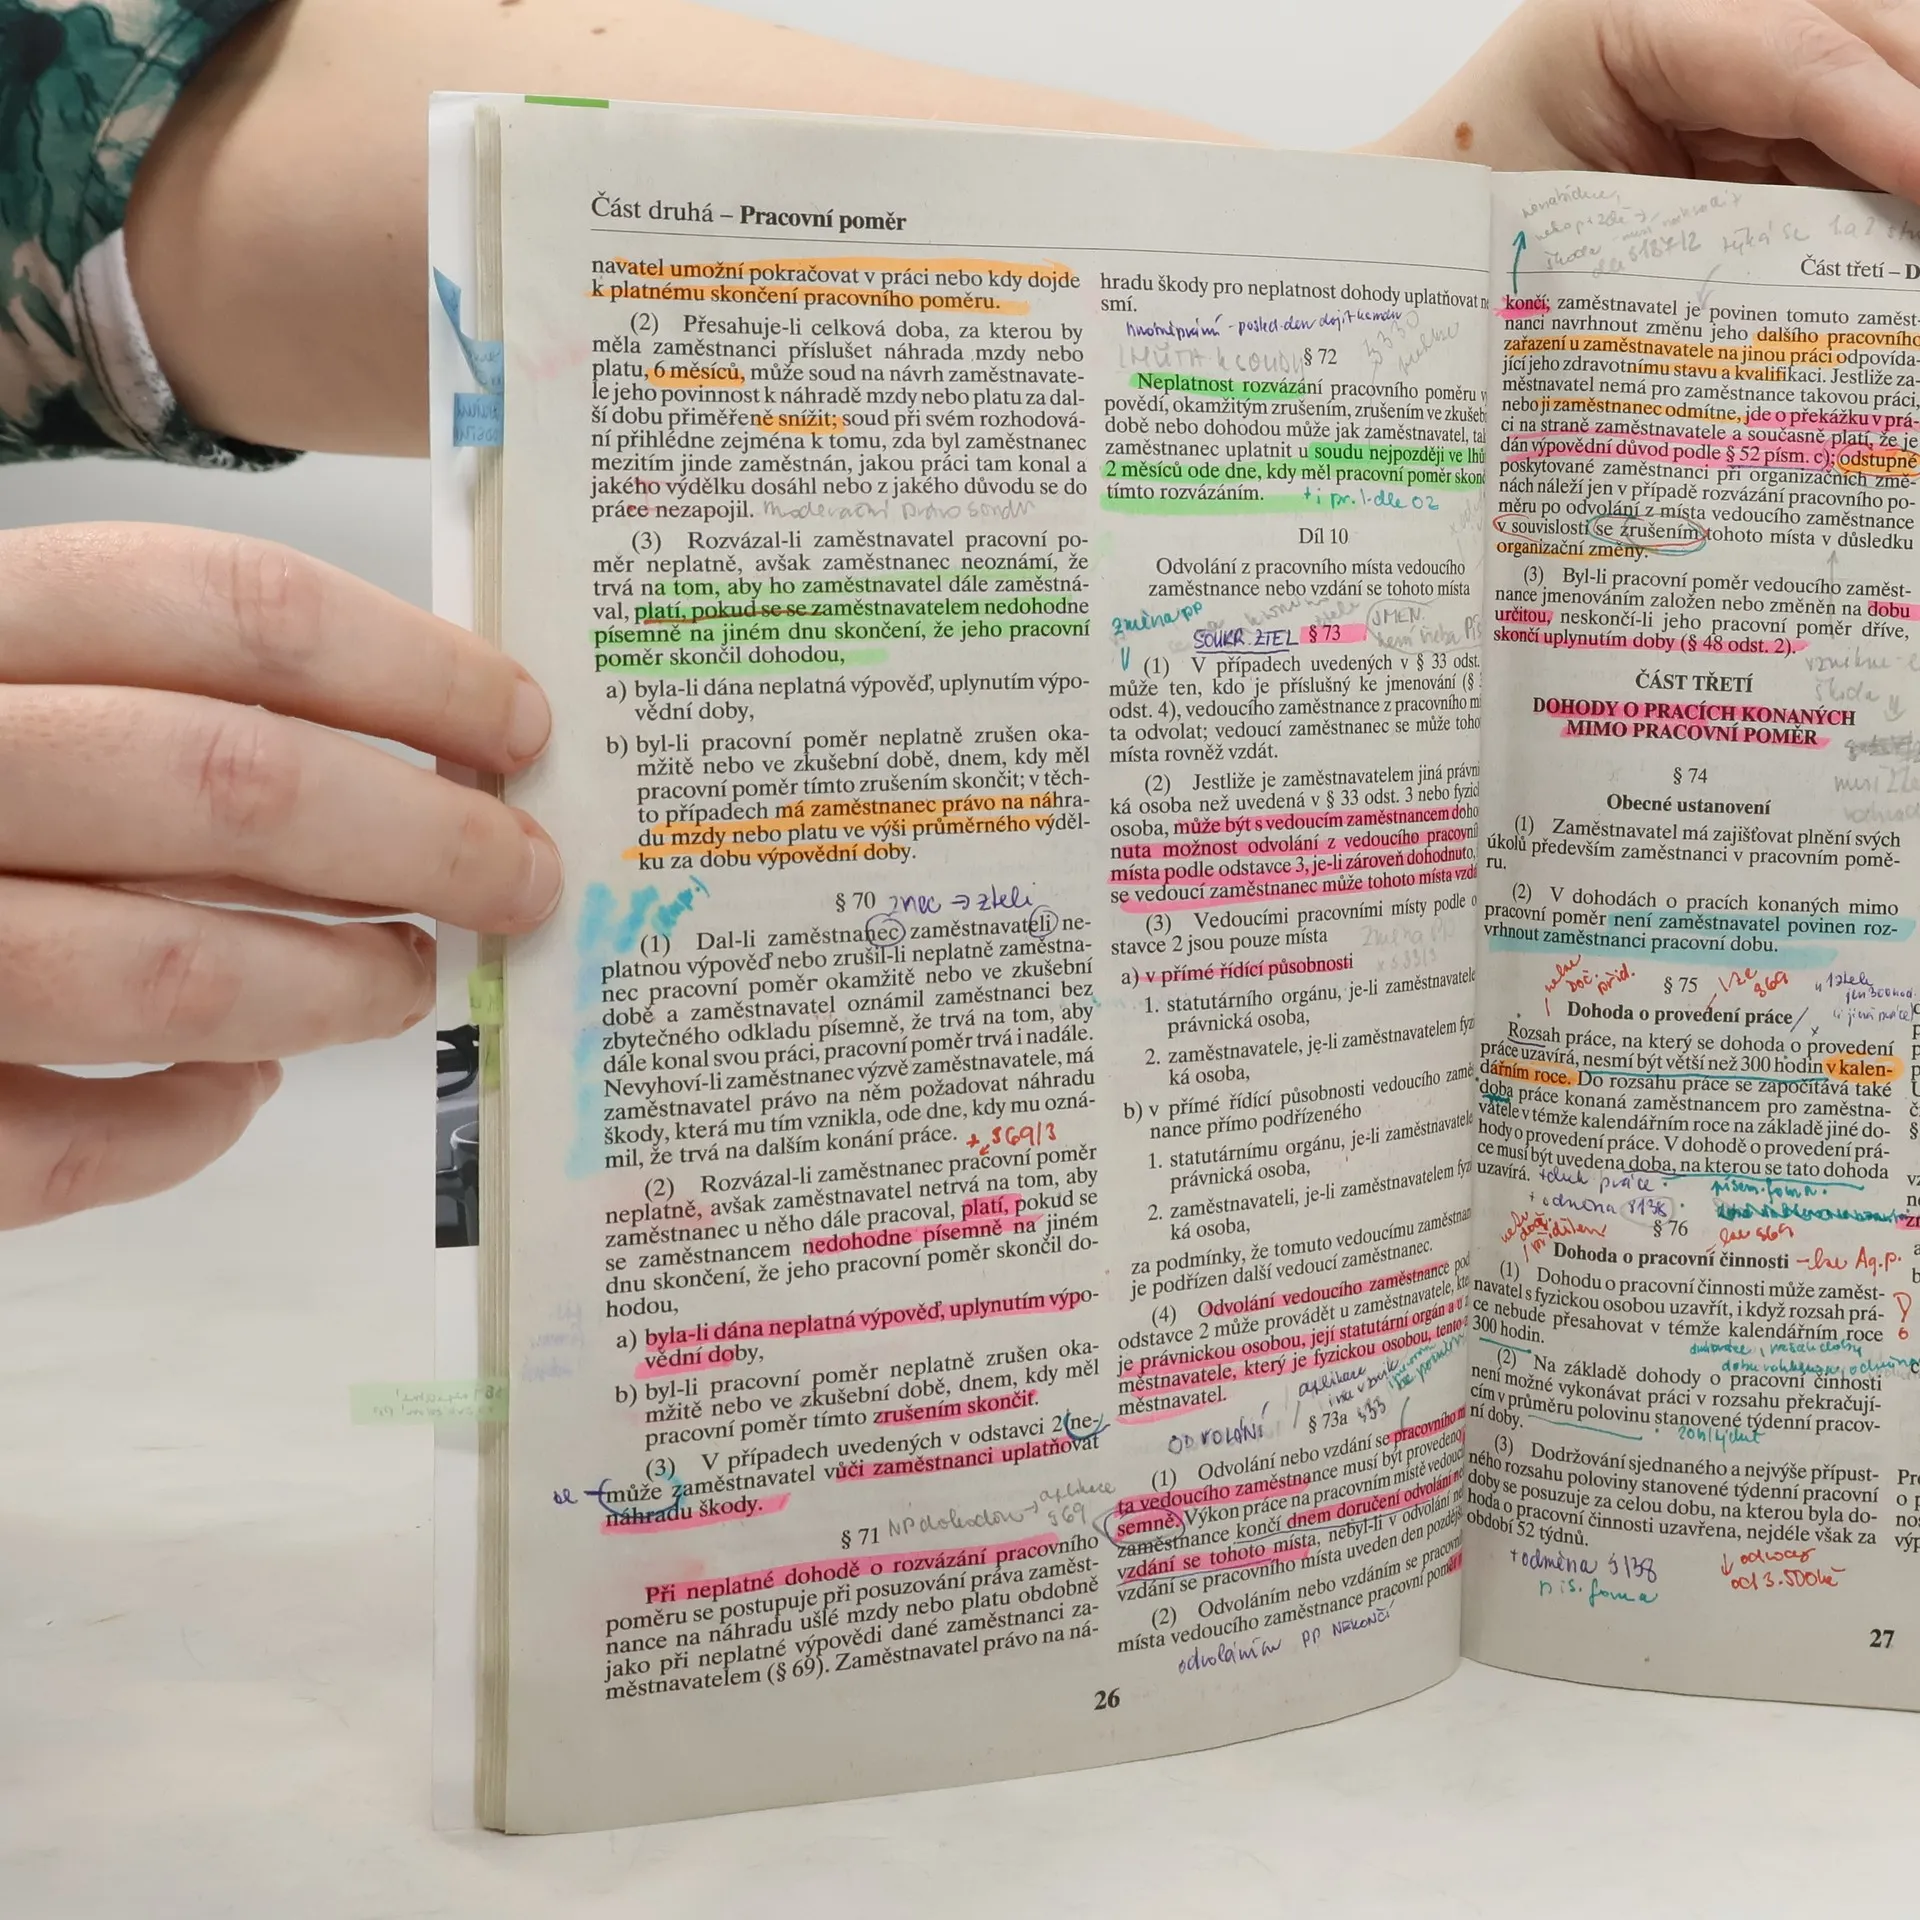 Část druhá – Pracovní poměr
navatel umožní pokračovat v práci nebo kdy dojde
k platnému skončení pracovního poměru.
(2) Přesahuje-li celková doba, za kterou by
měla zaměstnanci příslušet náhrada mzdy nebo
platu, 6 měsíců, může soud na návrh zaměstnavate-
le jeho povinnost k náhradě mzdy nebo platu za dal-
ší dobu přiměřeně snížit; soud při svém rozhodová-
ní přihlédne zejména k tomu, zda byl zaměstnanec
mezitím jinde zaměstnán, jakou práci tam konal a
jakého výdělku dosáhl nebo z jakého důvodu se do
práce nezapojil. moderační právo soudu
(3) Rozvázal-li zaměstnavatel pracovní po-
měr neplatně, avšak zaměstnanec neoznámí, že
trvá na tom, aby ho zaměstnavatel dále zaměstná-
val, platí, pokud se se zaměstnavatelem nedohodne
písemně na jiném dnu skončení, že jeho pracovní
poměr skončil dohodou,
a) byla-li dána neplatná výpověď, uplynutím výpo-
vědní doby,
b) byl-li pracovní poměr neplatně zrušen oka-
mžitě nebo ve zkušební době, dnem, kdy měl
pracovní poměr tímto zrušením skončit; v těch-
to případech má zaměstnanec právo na náhra-
du mzdy nebo platu ve výši průměrného výděl-
ku za dobu výpovědní doby.
§ 70 znec → zteli
(1) Dal-li zaměstnanec zaměstnavateli ne-
platnou výpověď nebo zrušil-li neplatně zaměstna-
nec pracovní poměr okamžitě nebo ve zkušební
době a zaměstnavatel oznámil zaměstnanci bez
zbytečného odkladu písemně, že trvá na tom, aby
dále konal svou práci, pracovní poměr trvá i nadále.
Nevyhoví-li zaměstnanec výzvě zaměstnavatele, má
zaměstnavatel právo na něm požadovat náhradu
škody, která mu tím vznikla, ode dne, kdy mu ozná-
mil, že trvá na dalším konání práce. + §69/3
(2) Rozvázal-li zaměstnanec pracovní poměr
neplatně, avšak zaměstnavatel netrvá na tom, aby
zaměstnanec u něho dále pracoval, platí, pokud se
se zaměstnancem nedohodne písemně na jiném
dnu skončení, že jeho pracovní poměr skončil do-
hodou,
a) byla-li dána neplatná výpověď, uplynutím výpo-
vědní doby,
b) byl-li pracovní poměr neplatně zrušen oka-
mžitě nebo ve zkušební době, dnem, kdy měl
pracovní poměr tímto zrušením skončit.
(3) V případech uvedených v odstavci 2 ne-
může zaměstnavatel vůči zaměstnanci uplatňovat
náhradu škody.
§ 71 NP dohodou → aplikace §69
Při neplatné dohodě o rozvázání pracovního
poměru se postupuje při posuzování práva zaměst-
nance na náhradu ušlé mzdy nebo platu obdobně
jako při neplatné výpovědi dané zaměstnanci za-
městnavatelem (§ 69). Zaměstnavatel právo na ná-
hradu škody pro neplatnost dohody uplatňovat ne
smí.
§ 72
Neplatnost rozvázání pracovního poměru v
povědí, okamžitým zrušením, zrušením ve zkušeb
době nebo dohodou může jak zaměstnavatel, tak
zaměstnanec uplatnit u soudu nejpozději ve lhů
2 měsíců ode dne, kdy měl pracovní poměr skonč
tímto rozvázáním. + i pr. 1. dle OZ
Díl 10
Odvolání z pracovního místa vedoucího
zaměstnance nebo vzdání se tohoto místa
změna PP
SOUKR. ZTEL § 73 JMEN.
(1) V případech uvedených v § 33 odst.
může ten, kdo je příslušný ke jmenování (§
odst. 4), vedoucího zaměstnance z pracovního mí
ta odvolat; vedoucí zaměstnanec se může toho
místa rovněž vzdát.
(2) Jestliže je zaměstnavatelem jiná právni
ká osoba než uvedená v § 33 odst. 3 nebo fyzic
osoba, může být s vedoucím zaměstnancem doho
nuta možnost odvolání z vedoucího pracovní
místa podle odstavce 3, je-li zároveň dohodnuto,
se vedoucí zaměstnanec může tohoto místa vzdá
(3) Vedoucími pracovními místy podle o
stavce 2 jsou pouze místa
a) v přímé řídící působnosti
1. statutárního orgánu, je-li zaměstnavatele
právnická osoba,
2. zaměstnavatele, je-li zaměstnavatelem fyz
ká osoba,
b) v přímé řídící působnosti vedoucího zamě
nance přímo podřízeného
1. statutárnímu orgánu, je-li zaměstnavatele
právnická osoba,
2. zaměstnavateli, je-li zaměstnavatelem fyz
ká osoba,
za podmínky, že tomuto vedoucímu zaměstnan
je podřízen další vedoucí zaměstnanec.
(4) Odvolání vedoucího zaměstnance pod
odstavce 2 může provádět u zaměstnavatele, kte
je právnickou osobou, její statutární orgán a u z
městnavatele, který je fyzickou osobou, tento z
městnavatel.
ODVOLÁNÍ
§ 73a §33
(1) Odvolání nebo vzdání se pracovního m
ta vedoucího zaměstnance musí být provedeno
semně. Výkon práce na pracovním místě vedoucí
zaměstnance končí dnem doručení odvolání ne
vzdání se tohoto místa, nebyl-li v odvolání ne
vzdání se pracovního místa uveden den pozdějš
(2) Odvoláním nebo vzdáním se pracovní
místa vedoucího zaměstnance pracovní poměr n
odvoláním PP NEKONČÍ
26
týká se 1 a 2
Část třetí – D
končí; zaměstnavatel je povinen tomuto zaměst-
nanci navrhnout změnu jeho dalšího pracovního
zařazení u zaměstnavatele na jinou práci odpovída-
jící jeho zdravotnímu stavu a kvalifikaci. Jestliže za-
městnavatel nemá pro zaměstnance takovou práci,
nebo ji zaměstnanec odmítne, jde o překážku v prá-
ci na straně zaměstnavatele a současně platí, že je
dán výpovědní důvod podle § 52 písm. c); odstupné
poskytované zaměstnanci při organizačních změ-
nách náleží jen v případě rozvázání pracovního po-
měru po odvolání z místa vedoucího zaměstnance
v souvislosti se zrušením tohoto místa v důsledku
organizační změny.
(3) Byl-li pracovní poměr vedoucího zaměst-
nance jmenováním založen nebo změněn na dobu
určitou, neskončí-li jeho pracovní poměr dříve,
skončí uplynutím doby (§ 48 odst. 2).
ČÁST TŘETÍ
DOHODY O PRACÍCH KONANÝCH
MIMO PRACOVNÍ POMĚR
§ 74
Obecné ustanovení
(1) Zaměstnavatel má zajišťovat plnění svých
úkolů především zaměstnanci v pracovním pomě-
ru.
(2) V dohodách o pracích konaných mimo
pracovní poměr není zaměstnavatel povinen roz-
vrhnout zaměstnanci pracovní dobu.
§ 75
Dohoda o provedení práce
Rozsah práce, na který se dohoda o provedení
práce uzavírá, nesmí být větší než 300 hodin v kalen-
dářním roce. Do rozsahu práce se započítává také
doba práce konaná zaměstnancem pro zaměstna-
vatele v témže kalendářním roce na základě jiné do-
hody o provedení práce. V dohodě o provedení prá-
ce musí být uvedena doba, na kterou se tato dohoda
uzavírá. + druh práce
písem. forma.
+ odměna §138
§ 76
Dohoda o pracovní činnosti – lze Ag.p.
(1) Dohodu o pracovní činnosti může zaměst-
navatel s fyzickou osobou uzavřít, i když rozsah prá-
ce nebude přesahovat v témže kalendářním roce
300 hodin.
(2) Na základě dohody o pracovní činnosti
není možné vykonávat práci v rozsahu překračují-
cím v průměru polovinu stanovené týdenní pracov-
ní doby.
20h/týdně
(3) Dodržování sjednaného a nejvýše přípust-
ného rozsahu poloviny stanovené týdenní pracovní
doby se posuzuje za celou dobu, na kterou byla do-
hoda o pracovní činnosti uzavřena, nejdéle však za
období 52 týdnů.
+ odměna §138
pís. forma
↓ odvody
od 3.500kč
27